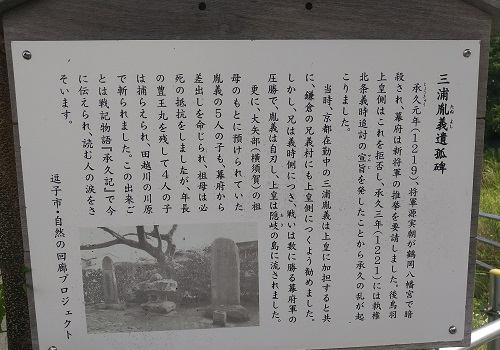 三浦胤義遺孤碑
たね よし
承久元年(1219)、将軍源実朝が鶴岡八幡宮で暗
じょうきゅう
殺され、幕府は新将軍の推挙を要請しました。後鳥羽
上皇側はこれを拒否し、承久三年(1221)には執権
北条義時追討の宣旨を発したことから承久の乱が起
こりました。
当時、京都在勤中の三浦胤義は上皇に加担すると共
に、鎌倉の兄義村にも上皇側につくよう勧めました。
しかし、兄は義時側につき、戦いは数に勝る幕府軍の
圧勝で、胤義は自刃し、上皇は隠岐の島に流されました。
更に、大矢部(横須賀)の祖
母のもとに預けられていた
胤義の5人の子も、幕府から
差出しを命じられ、祖母は必
死の抵抗をしましたが、年長
の豊王丸を残して4人の子
は捕らえられ、田越川の川原
で斬られました。この出来ご
とは戦記物語『承久記』で今
に伝えられ、読む人の涙をさ
そいます。
逗子市・自然の回廊プロジェクト